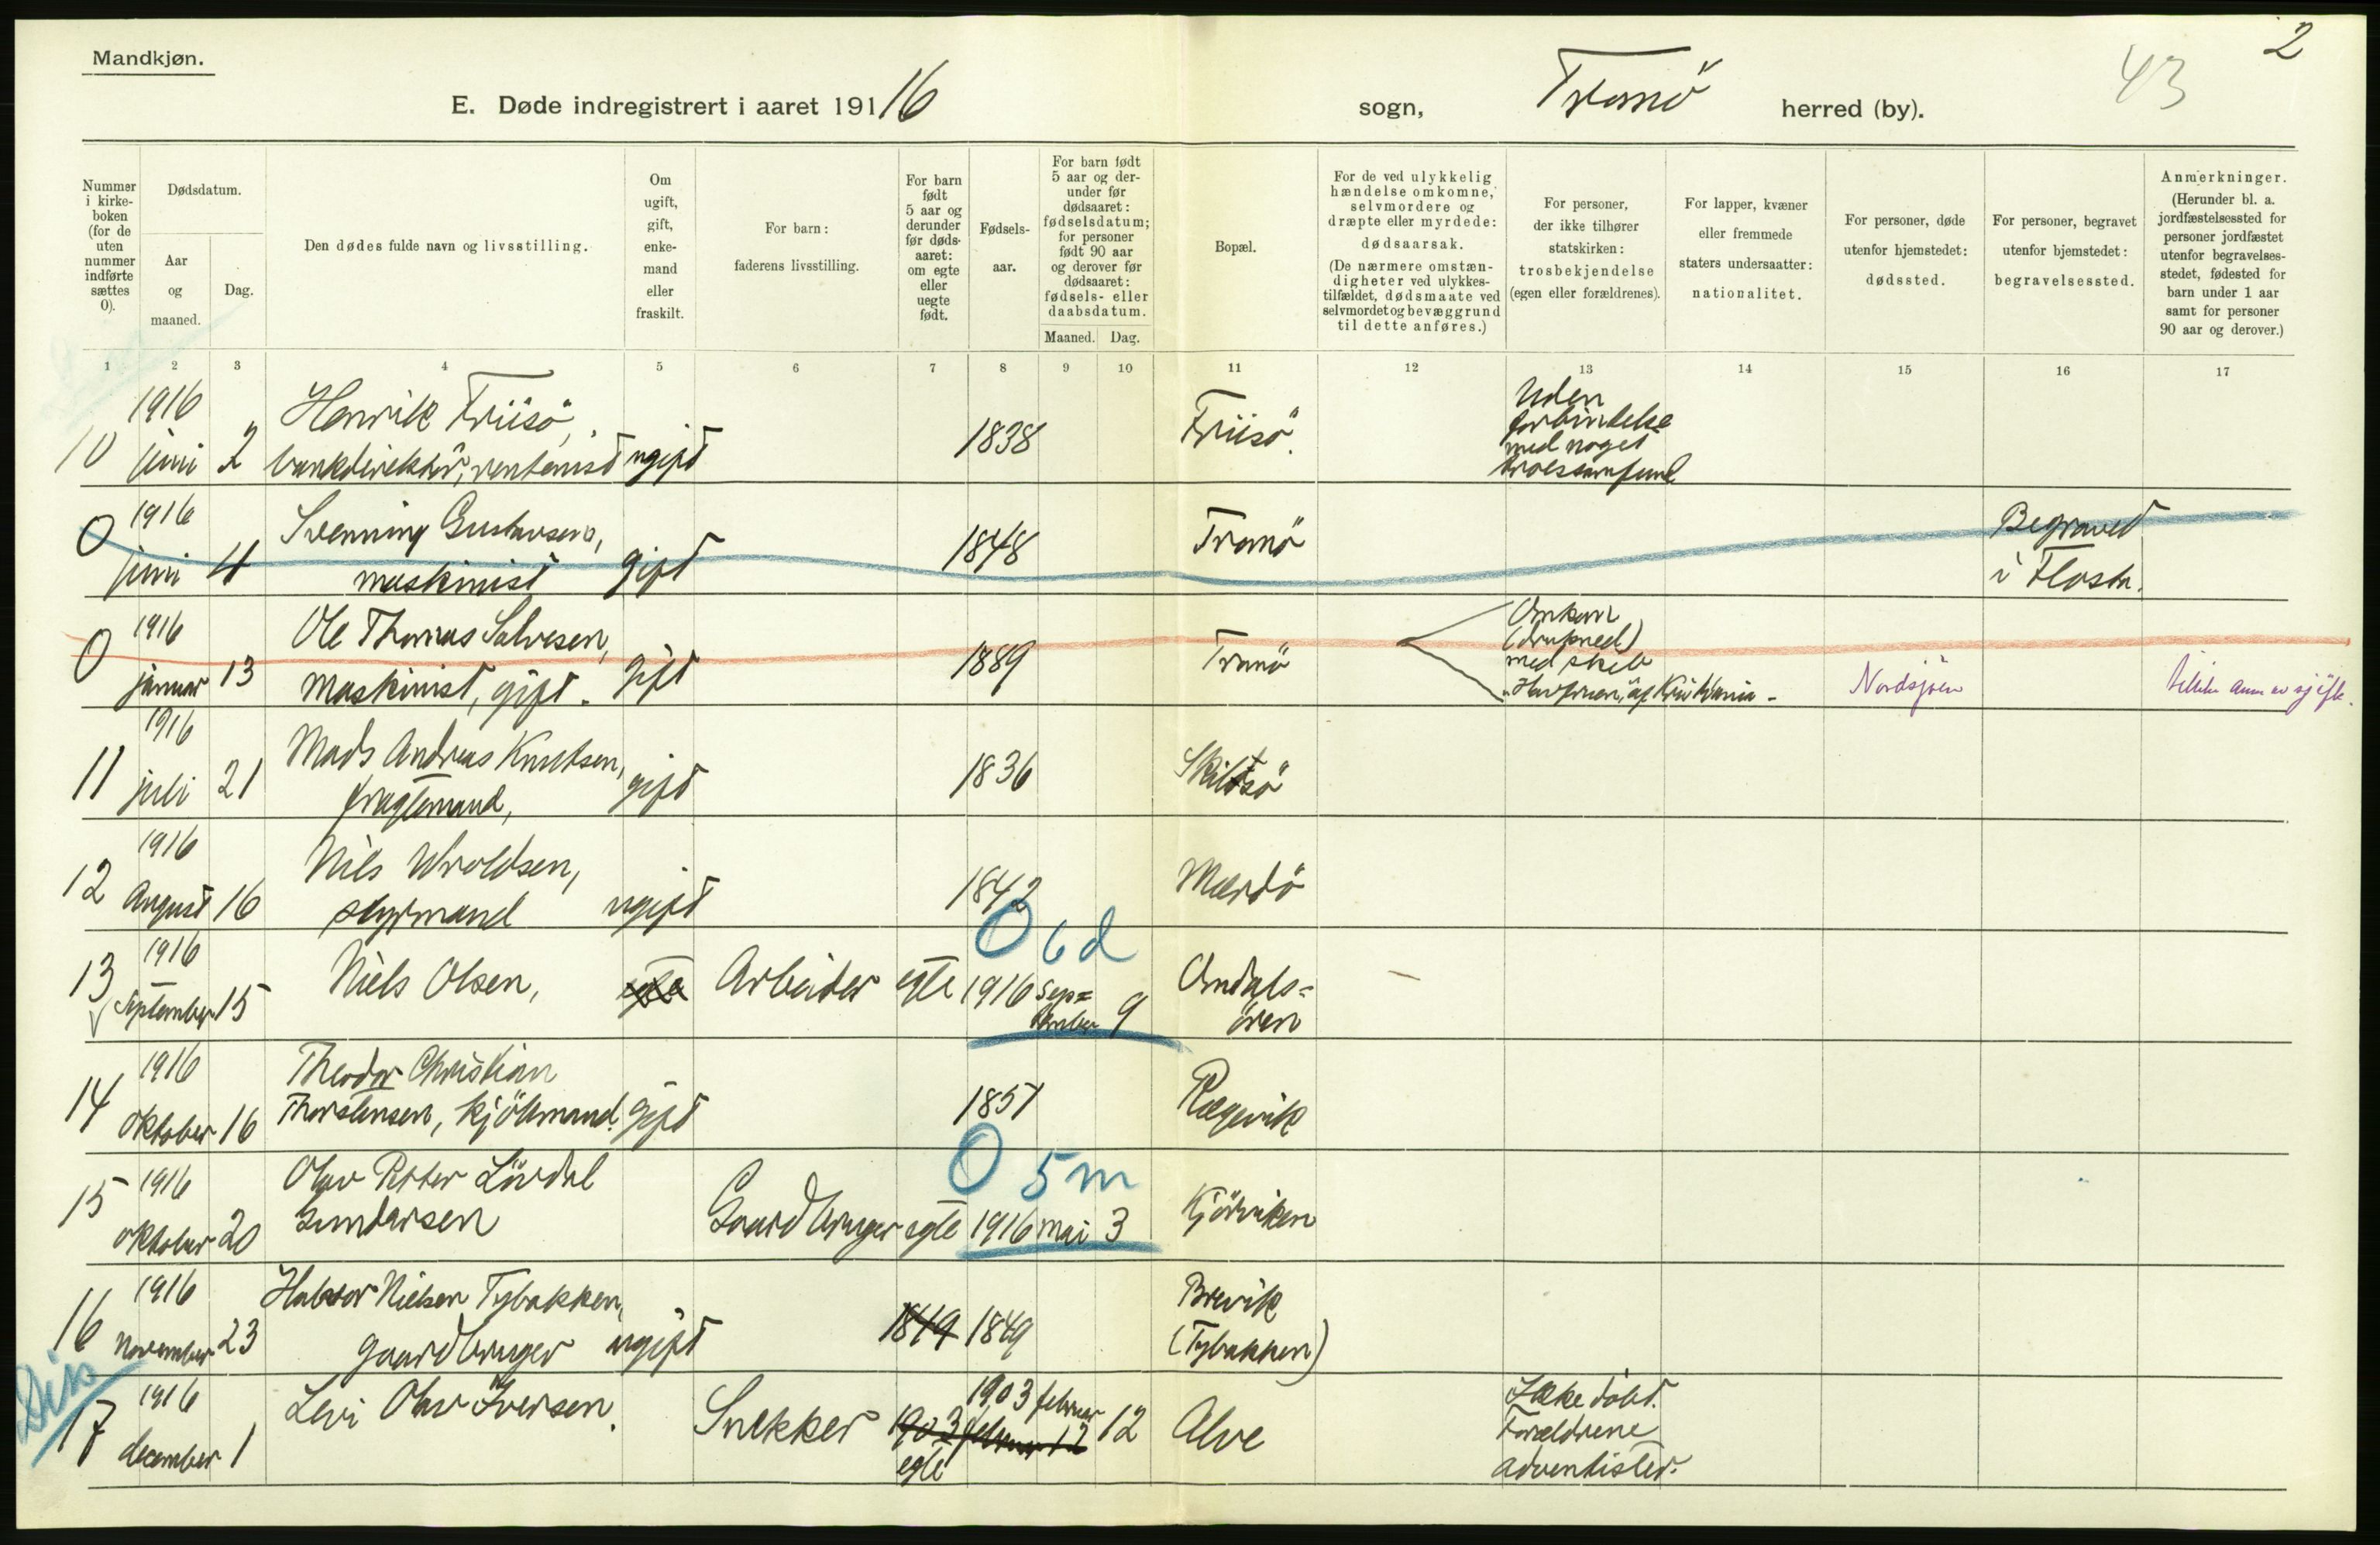 Mandkjøn.
2
43
E. Døde indregistrert i aaret 19116 sogn, Tromö herred (by).
Nummer i kirke-boken (for de uten nummer indførte sættes 0).
Dødsdatum.
Aar og maaned.
Dag.
Den dødes fulde navn og livsstilling.
Om ugift, gift, enke-mand eller fraskilt.
For barn: faderens livsstilling.
For barn født 5 aar og derunder før døds-aaret: om egte eller uegte født.
Fødsels-aar.
For barn født 5 aar og der-under før dødsaaret: fødselsdatum; for personer født 90 aar og derover før dødsaaret: fødsels- eller daabsdatum.
Maaned. Dag.
Bopæl.
For de ved ulykkelig hændelse omkomne, selvmordere og dræpte eller myrdede: dødsaarsak. (De nærmere omstæn-digheter ved ulykkes-tilfældet, dødsmaate ved selvmordet og bevæggrund til dette anføres.)
For personer, der ikke tilhører statskirken: trosbekjendelse (egen eller forældrenes).
For lapper, kvæner eller fremmede staters undersaatter: nationalitet.
For personer, døde utenfor hjemstedet: dødssted.
For personer, begravet utenfor hjemstedet: begravelsessted.
Anmerkninger. (Herunder bl. a. jordfæstelsessted for personer jordfæstet utenfor begravelses-stedet, fødested for barn under 1 aar samt for personer 90 aar og derover.)
1 2 3 4 5 6 7 8 9 10 11 12 13 14 15 16 17
1916 Henrik Friisö, Friisö. Uden forbindelse
10 juni 2 bankdirektör, rentenist ugift 1838 med noget troessamfund
1916 Svenning Gustavsen, Tromö Begraved
0 juni 4 maskinist gift 1848 i Flosta.
1916 Ole Thomas Salvesen, Omkom
0 januar 13 maskinist, gift. gift 1889 Tromö med skib Nordsjöen
1916 Mads Andreas Knutsen,
11 juli 21 fragtemand, gift 1836 Skiltsö
1916 Nils Uvoldsen,
12 August 16 styrmand ugift 1842 Mærdö
0 6 d
1916
13 September 15 Niels Olsen, egte Arbeider egte 1916 Sep=tember 9 Omdals=ören
1916 Theodor Christian
14 oktober 16 Thorstensen, kjölmand. gift 1851 Rægevik
0 5 m
1916 Olav Petter Lövdal
15 oktober 20 Gundersen Gaardbruger egte 1916 mai 3 Kjörviken
1916 Halvor Nielsen Tybakken, Brevik
16 november 23 gaardbruger ugift 1819 1849 (Tybakken)
Dis
1916 Levi Olav Iversen. 1903 februar Ikke döbt.
17 december 1 Snekker 1903 februar 12 12 Alve Forældrene
egte adventister.